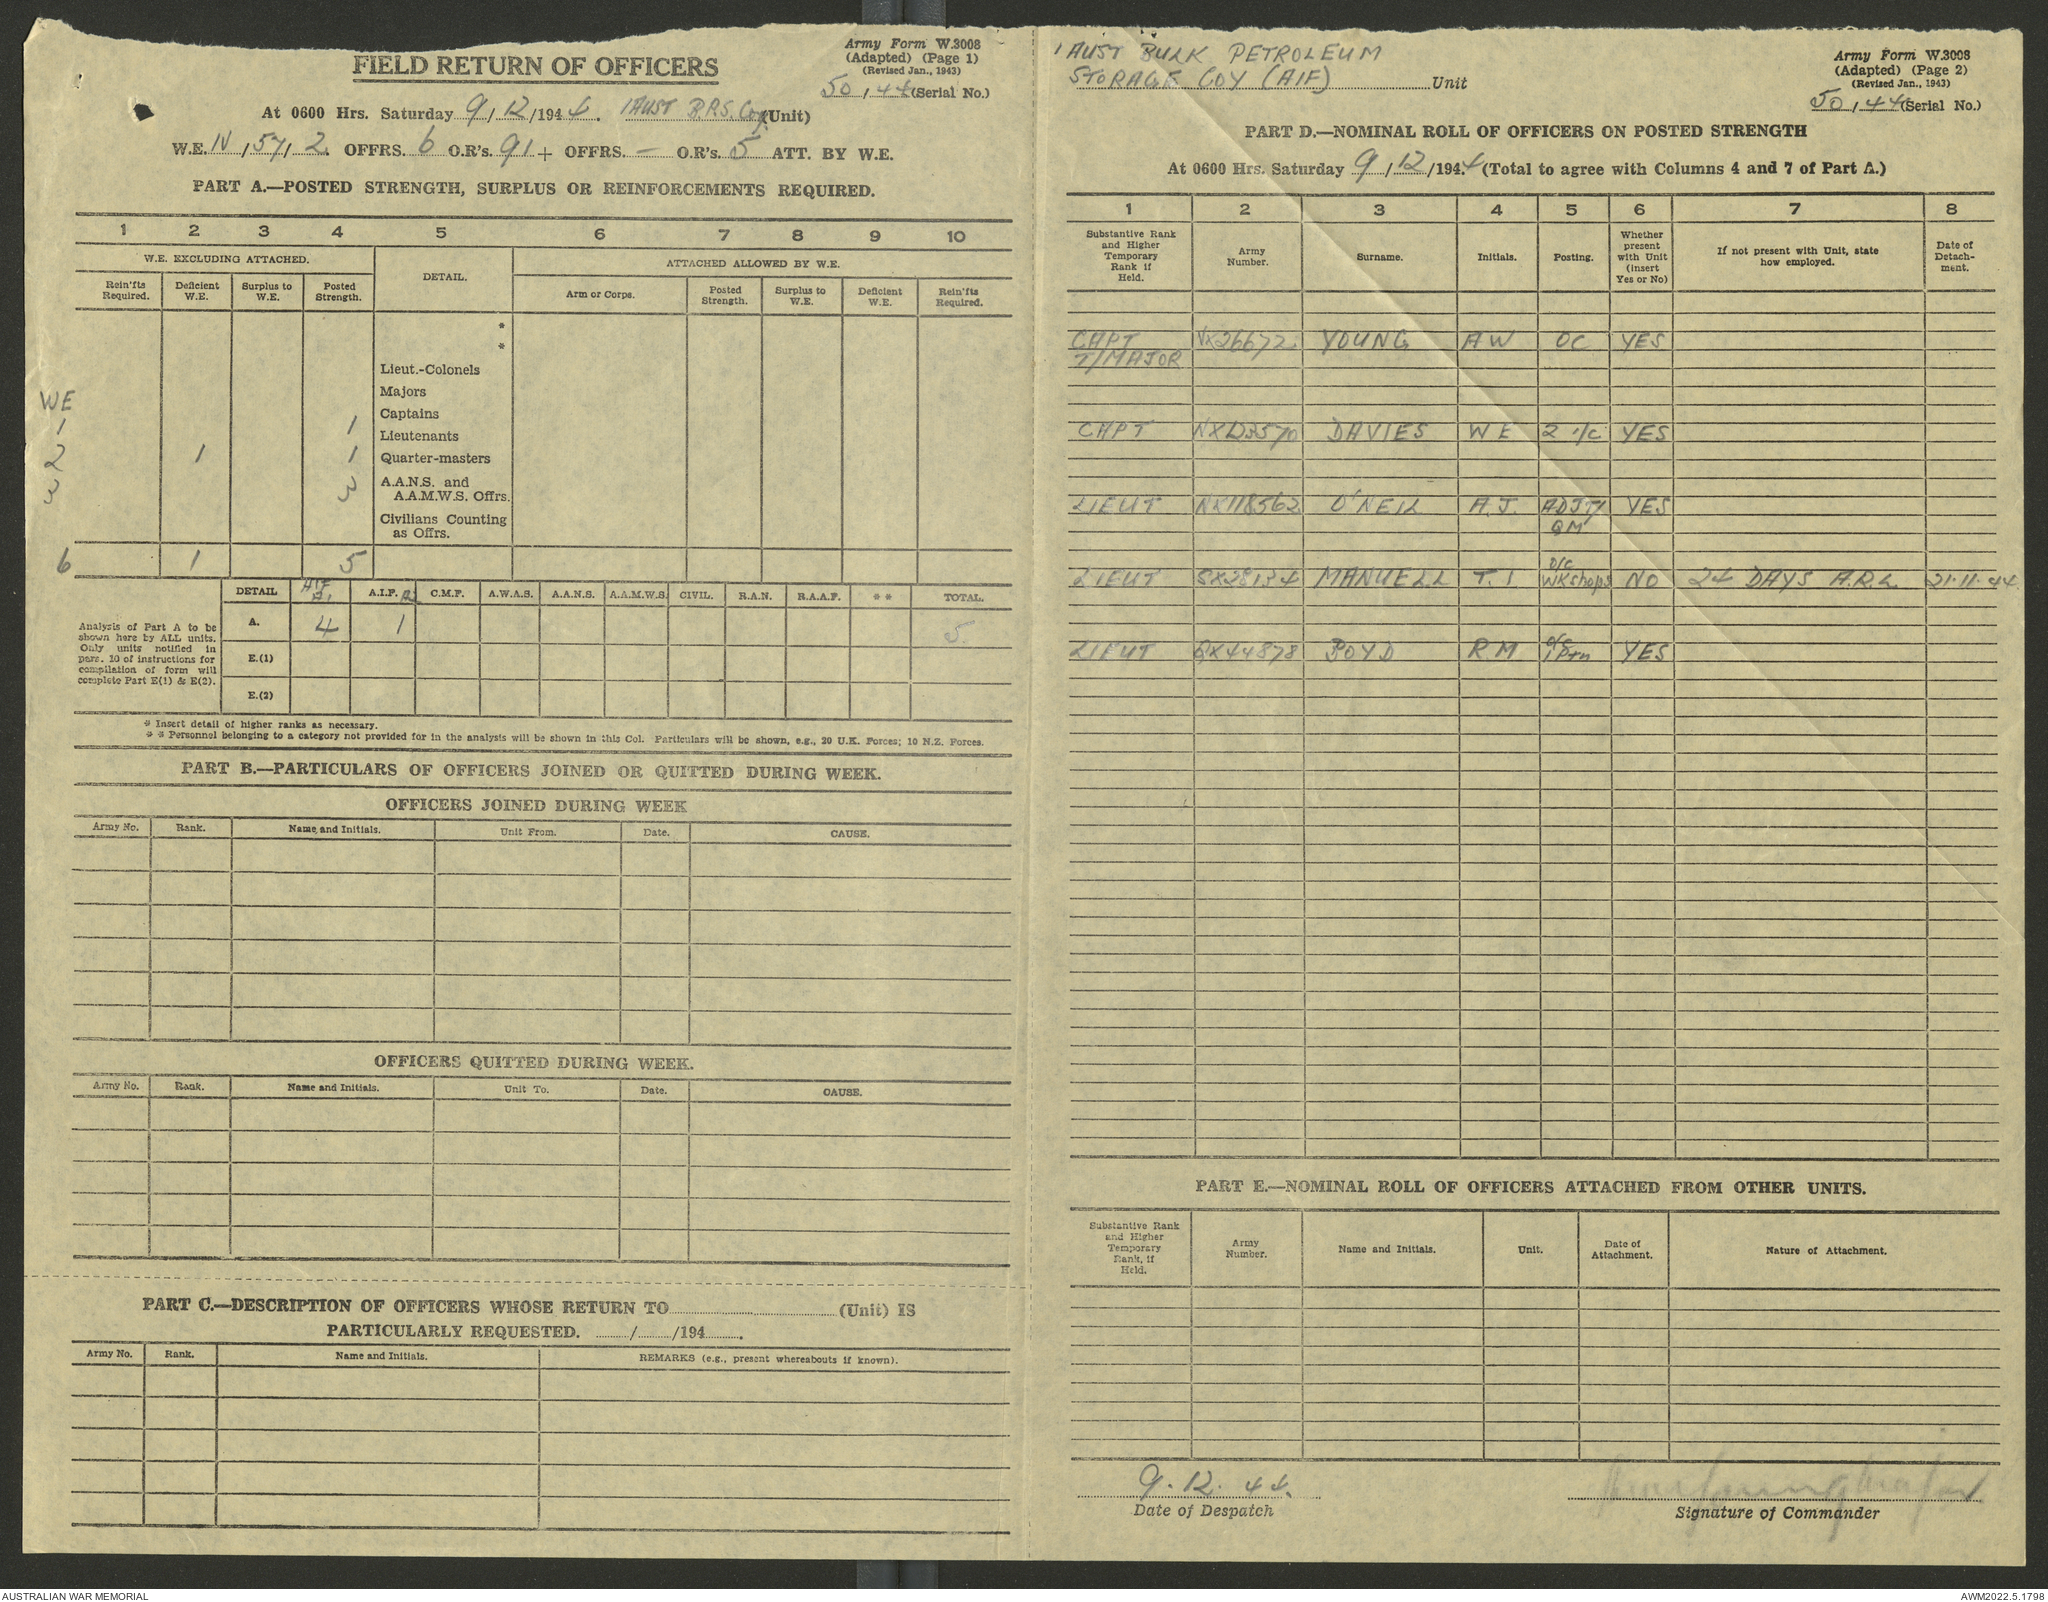 Army Form W.3008
(Adapted) (Page 1)
(Revised Jan., 1943)
FIELD RETURN OF OFFICERS
50, 44 (Serial No.)
At 0600 Hrs. Saturday 9/12/1944. 1 AUST B.P.S. Coy (Unit)
W.E. IV, 57, 2. OFFRS. 6 O.R's. 91 + OFFRS. — O.R's. 5 ATT. BY W.E.
PART A.—POSTED STRENGTH, SURPLUS OR REINFORCEMENTS REQUIRED.
1 2 3 4 5 6 7 8 9 10
W.E. EXCLUDING ATTACHED. DETAIL. ATTACHED ALLOWED BY W.E.
Rein'fts Required. Deficient W.E. Surplus to W.E. Posted Strength. Arm or Corps. Posted Strength. Surplus to W.E. Deficient W.E. Rein'fts Required.
*
*
Lieut.-Colonels
Majors
WE
Captains
1 1
Lieutenants
2 1 1 Quarter-masters
3 3 A.A.N.S. and
A.A.M.W.S. Offrs.
Civilians Counting
as Offrs.
6 1 5
DETAIL AIF A1 A.I.F. A2 C.M.F. A.W.A.S. A.A.N.S. A.A.M.W.S. CIVIL. R.A.N. R.A.A.F. ** TOTAL.
Analysis of Part A to be
shown here by ALL units.
Only units notified in
para. 10 of instructions for
compilation of form will
complete Part E(1) & E(2).
A. 4 1 5
E.(1)
E.(2)
* Insert detail of higher ranks as necessary.
* * Personnel belonging to a category not provided for in the analysis will be shown in this Col. Particulars will be shown, e.g., 20 U.K. Forces; 10 N.Z. Forces.
PART B.—PARTICULARS OF OFFICERS JOINED OR QUITTED DURING WEEK.
OFFICERS JOINED DURING WEEK
Army No. Rank. Name and Initials. Unit From. Date. CAUSE.
OFFICERS QUITTED DURING WEEK.
Army No. Rank. Name and Initials. Unit To. Date. CAUSE.
PART C.—DESCRIPTION OF OFFICERS WHOSE RETURN TO (Unit) IS
PARTICULARLY REQUESTED. / /194 .
Army No. Rank. Name and Initials. REMARKS (e.g., present whereabouts if known).
1 AUST BULK PETROLEUM
STORAGE COY (AIF) Unit
Army Form W.3008
(Adapted) (Page 2)
(Revised Jan., 1943)
50, 44 (Serial No.)
PART D.—NOMINAL ROLL OF OFFICERS ON POSTED STRENGTH
At 0600 Hrs. Saturday 9/12/1944 (Total to agree with Columns 4 and 7 of Part A.)
1 2 3 4 5 6 7 8
Substantive Rank and Higher Temporary Rank if Held. Army Number. Surname. Initials. Posting. Whether present with Unit (insert Yes or No) If not present with Unit, state how employed. Date of Detachment.
CAPT VX26672 YOUNG A W OC YES
T/MAJOR
CAPT DAVIES W E 2 I/C YES
LIEUT NX118562 O'NEIL A.J. ADJT/ YES
QM
O/C
LIEUT SX28134 MANUELL T. I WKshops NO 24 DAYS A.R.L. 21.11.44
O/C
LIEUT QX44878 BOYD R.M 1 Ptn YES
PART E.—NOMINAL ROLL OF OFFICERS ATTACHED FROM OTHER UNITS.
Substantive Rank and Higher Temporary Rank, if Held. Army Number. Name and Initials. Unit. Date of Attachment. Nature of Attachment.
9.12.44.
Date of Despatch
Signature of Commander
AUSTRALIAN WAR MEMORIAL
AWM2022.5.1798